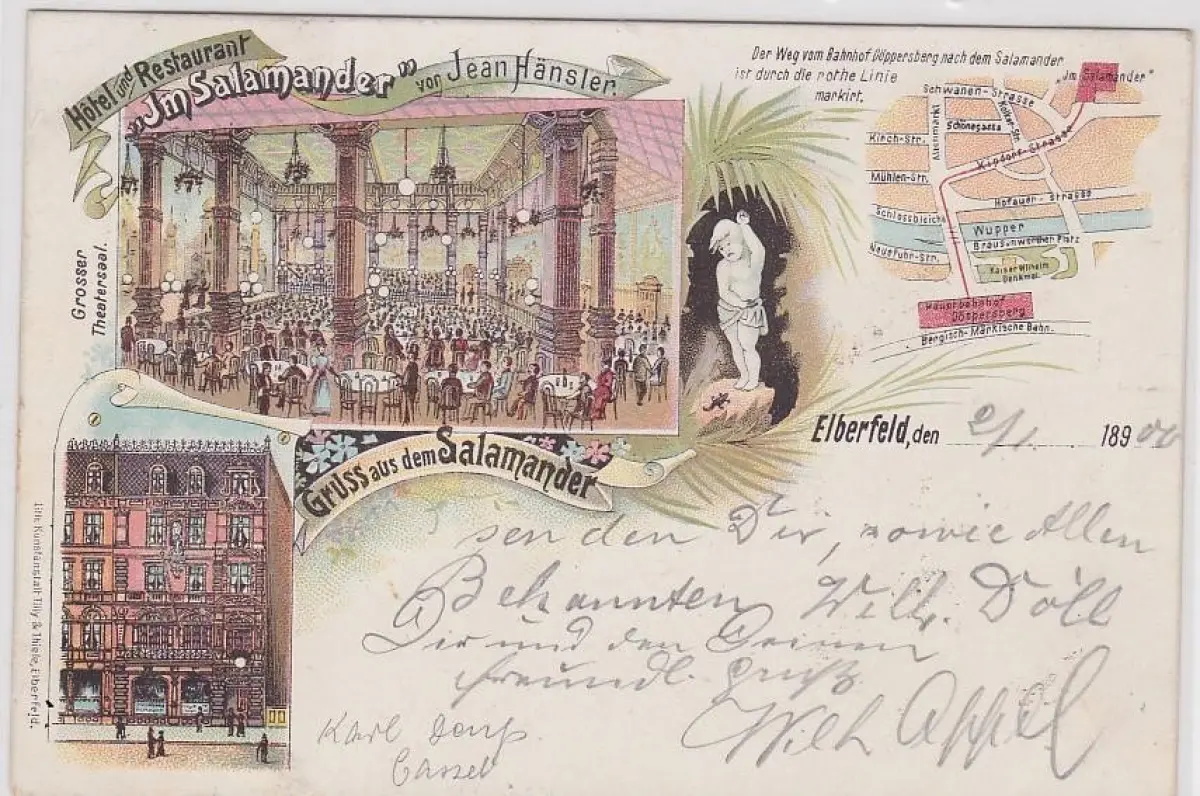 Hôtel und Restaurant
„Im Salamander” von Jean Hänsler.
Der Weg vom Bahnhof Döppersberg nach dem Salamander
ist durch die rothe Linie
markirt.
„Im Salamander"
Schwanen-Strasse
Altenmarkt
Schönegasse
Kirch-Str.
Kipdorf-Strasse
Mühlen-Str.
Hofauer-Strasse
Schlossbleiche
Wupper
Neueufuhr-Str.
Brausenwerther Platz
Kaiser Wilhelm
Denkmal
Hauptbahnhof
Döppersberg
Bergisch-Märkische Bahn.
Grosser
Theatersaal.
Gruss aus dem Salamander
Elberfeld, den 2/1. 1890 00
senden Dir, sowie Allen
Bekannten Wilh. Döll
Dir und den Deinen
freundl. Gruß
Wilh Appel
Karl
Cassel
Lith. Kunstanstalt Tilly & Thiele, Elberfeld.